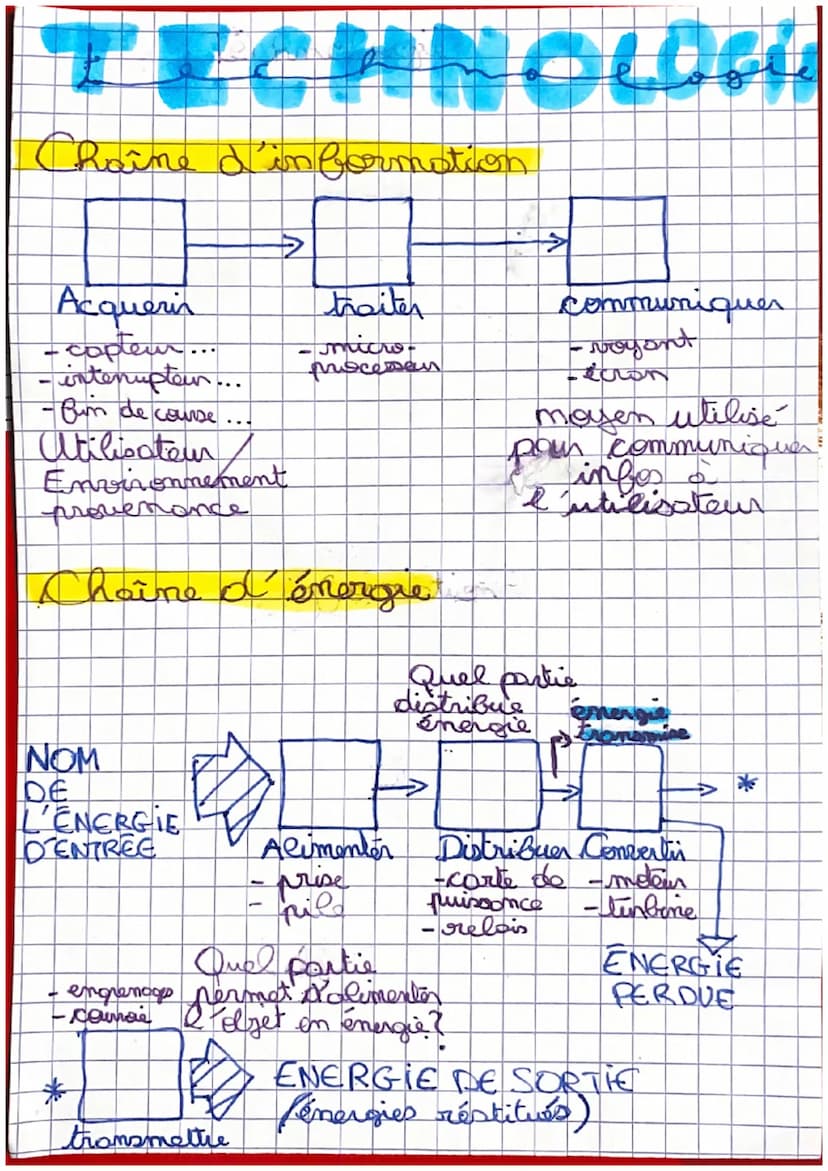 TECHNOLOGIE
technologie
Chaîne d'information
Acquerir
traiter
communiquer
- capteur...
- interrupteur...
- fin de course...
- micro-
processeur
- voyant
- écran
Utilisateur /
Environnement
provenance
moyen utilisé
pour communiquer
infos à
l'utilisateur
Chaîne d'énergie
Quel partie
distribue
énergie
énergie
transmise
NOM
DE
L'ÉNERGIE
D'ENTRÉE
*
Alimenter
Distribuer
Convertir
- prise
- pile
- carte de
puissance
- relais
- moteur
- turbine
ÉNERGIE
PERDUE
Quel partie
permet d'alimenter
l'objet en énergie?
- engrenage
- courroie
*
transmettre
ENERGIE DE SORTIE
(énergies réstitués)